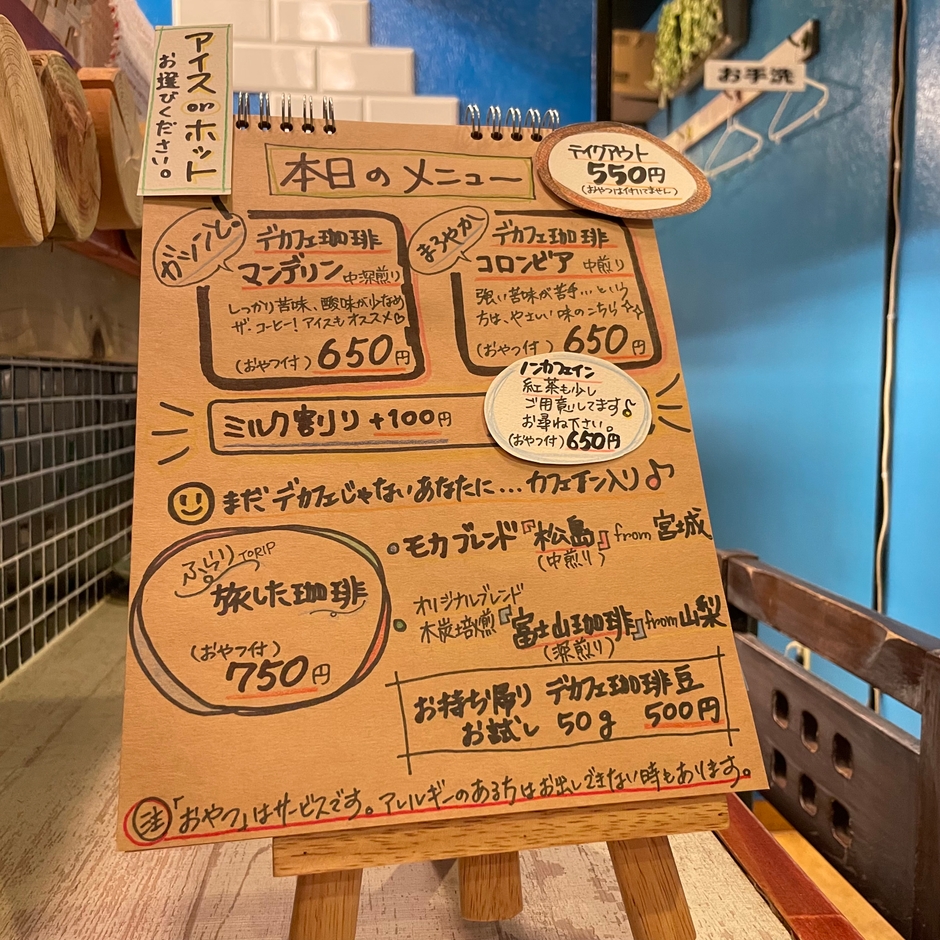 アイス or ホット
お選びください。
お手洗
本日のメニュー
テイクアウト
550円
(おやつは付いてません)
ガツンと。
デカフェ珈琲
マンデリン 中深煎り
しっかり苦味、酸味が少なめ
ザ.コーヒー！アイスもオススメ♡
(おやつ付) 650円
まろやか
デカフェ珈琲
コロンビア 中煎り
強い苦味が苦手…という
方は、やさしい味のこちら
(おやつ付) 650円
ミルク割り +100円
ノンカフェイン
紅茶も少し
ご用意してます♪
お尋ね下さい。
(おやつ付) 650円
まだデカフェじゃないあなたに…カフェイン入り♪
ふらり TORIP
旅した珈琲
(おやつ付)
750円
・モカブレンド『松島』from 宮城
(中煎り)
オリジナルブレンド
・木炭焙煎『富士山珈琲』from 山梨
(深煎り)
お持ち帰り デカフェ珈琲豆
お試し 50g 500円
注「おやつ」はサービスです。アレルギーのある方はお出しできない時もあります。